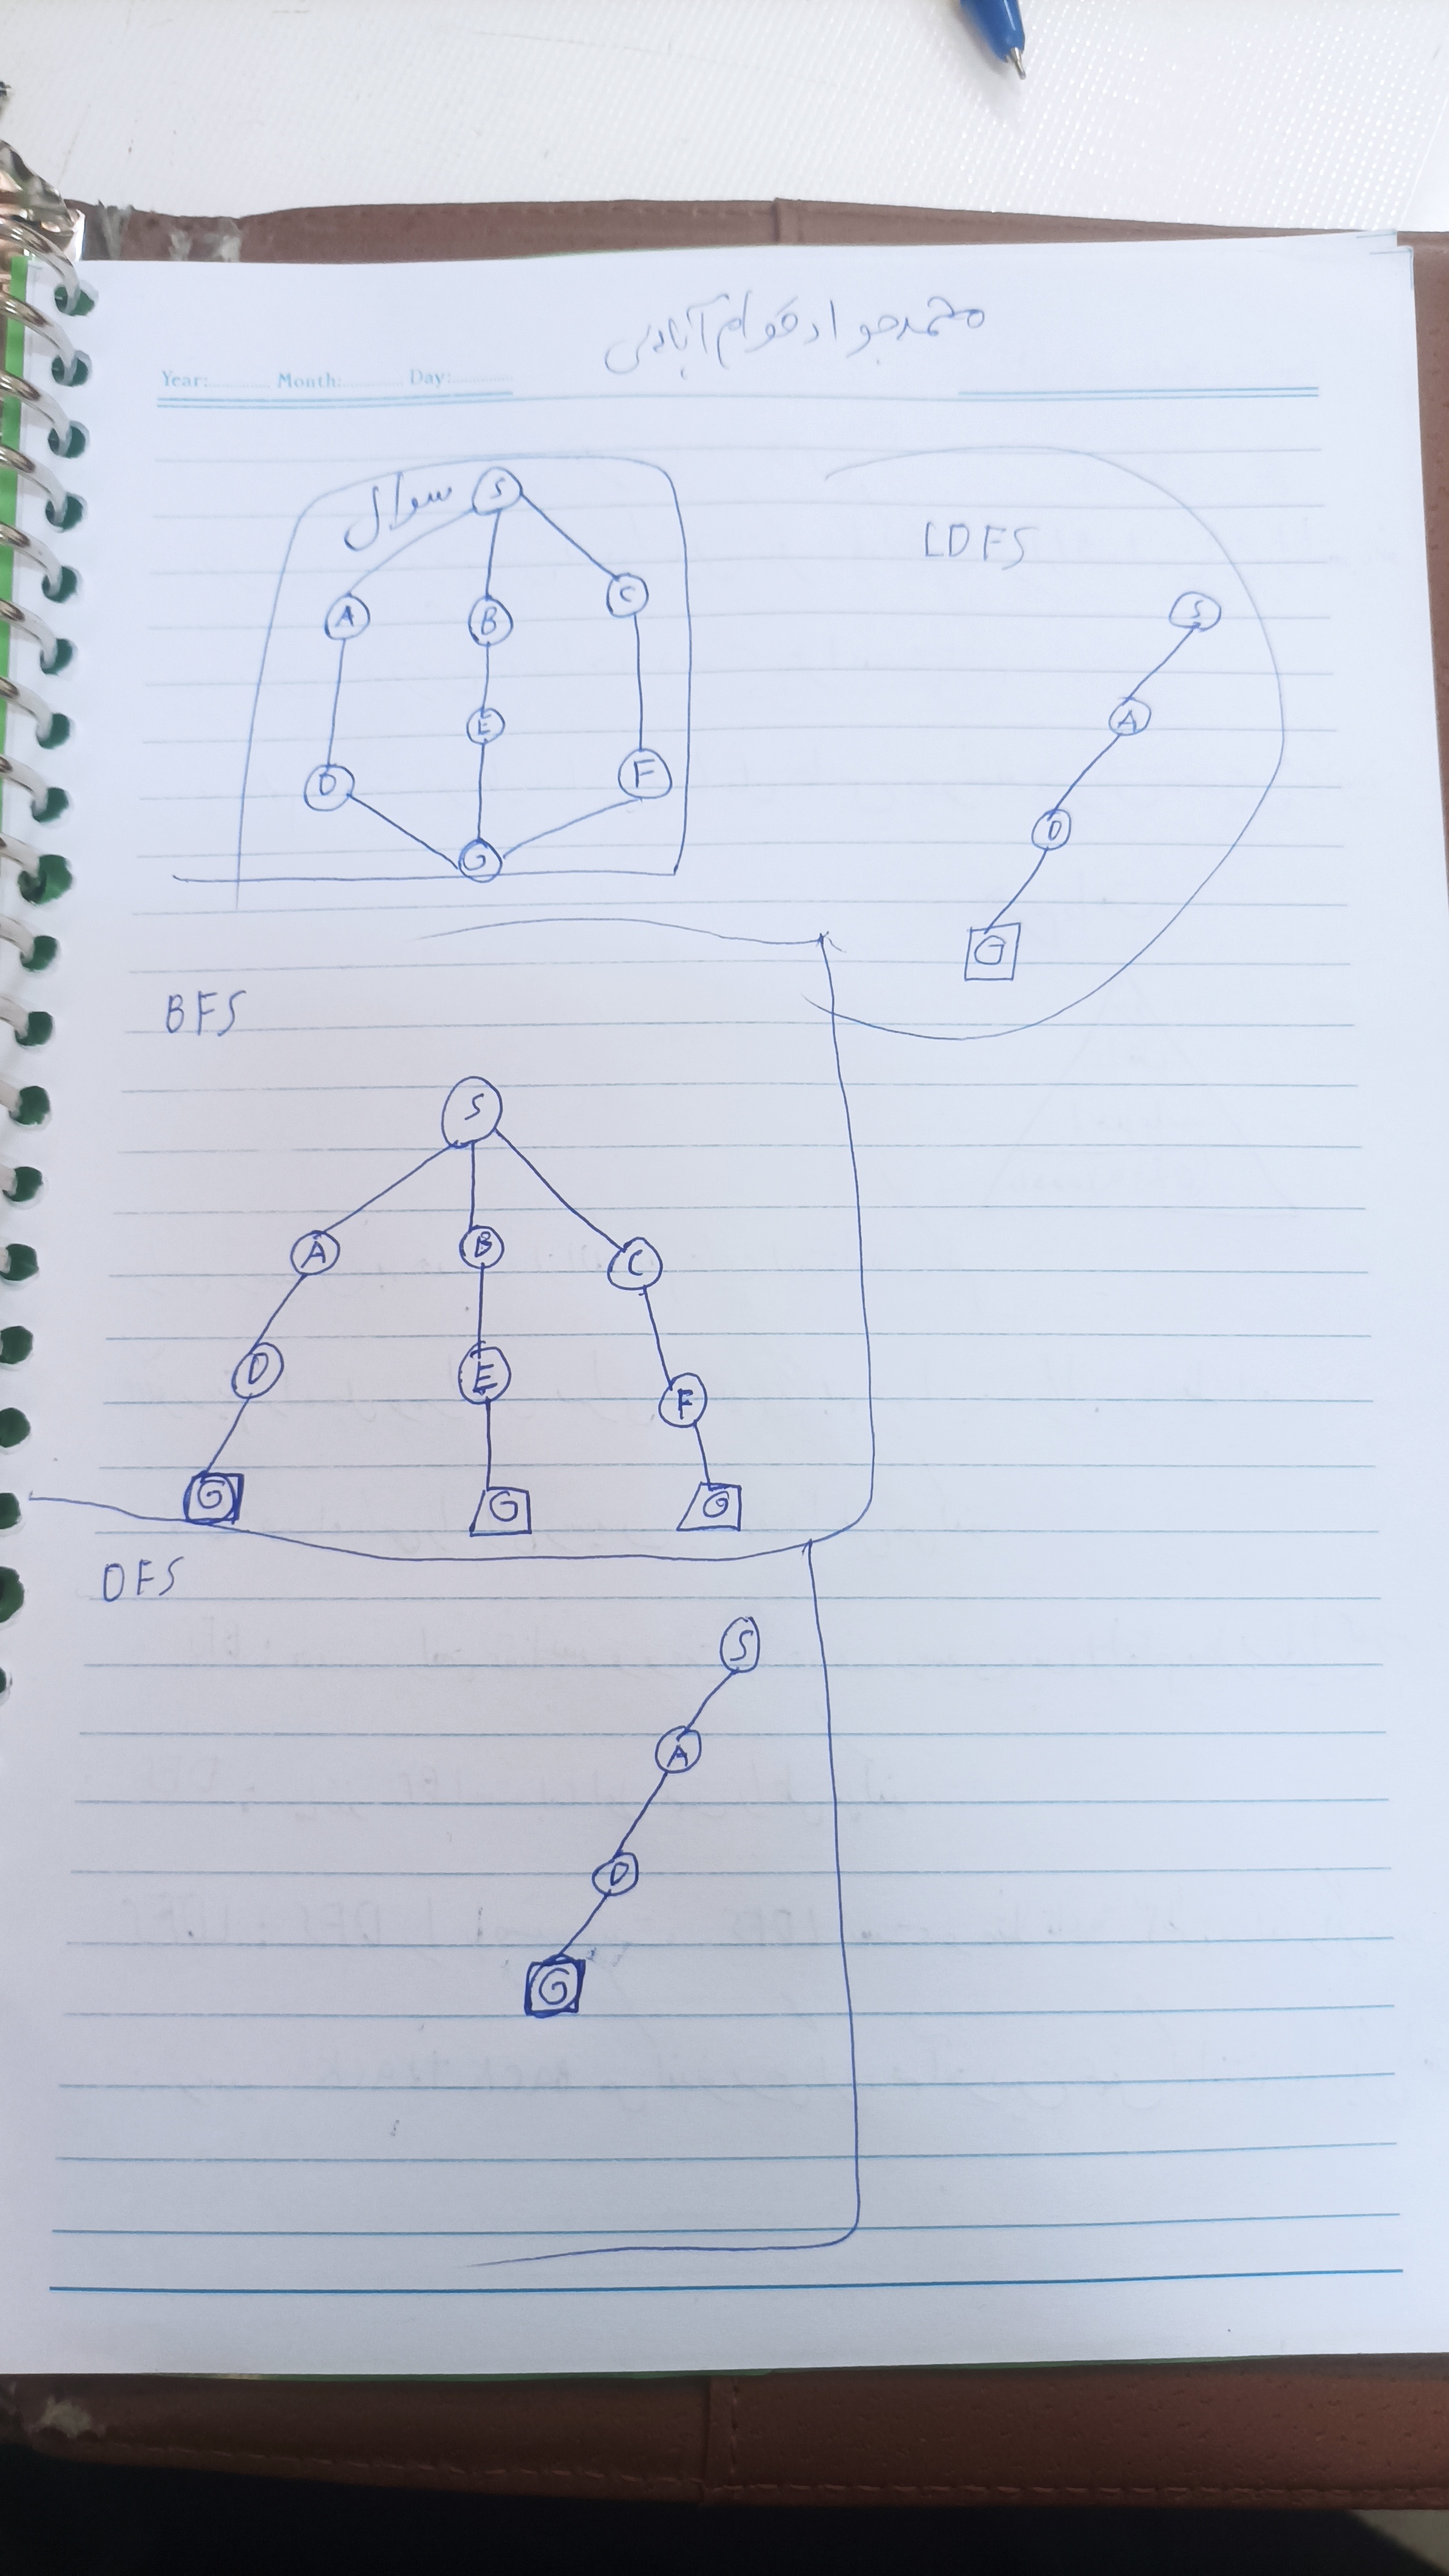 محمدجواد قوام آبادی
Year: Month: Day:
سوال
S
A B C
E
D F
G
LDFS
S
A
D
G
BFS
S
A B C
D E F
G G G
DFS
S
A
D
G